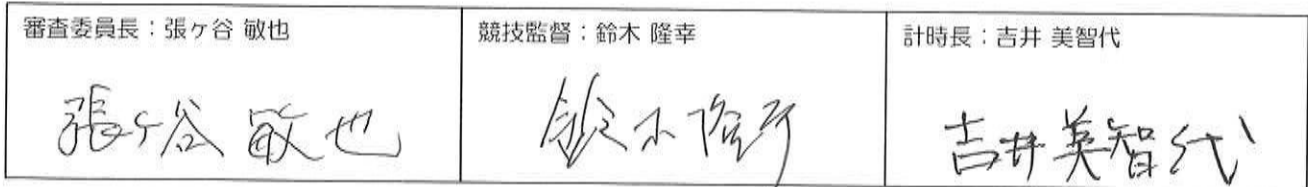 審査委員長：張ケ谷 敏也
競技監督：鈴木 隆幸
計時長：吉井 美智代
張ケ谷 敏也
鈴木隆幸
吉井美智代